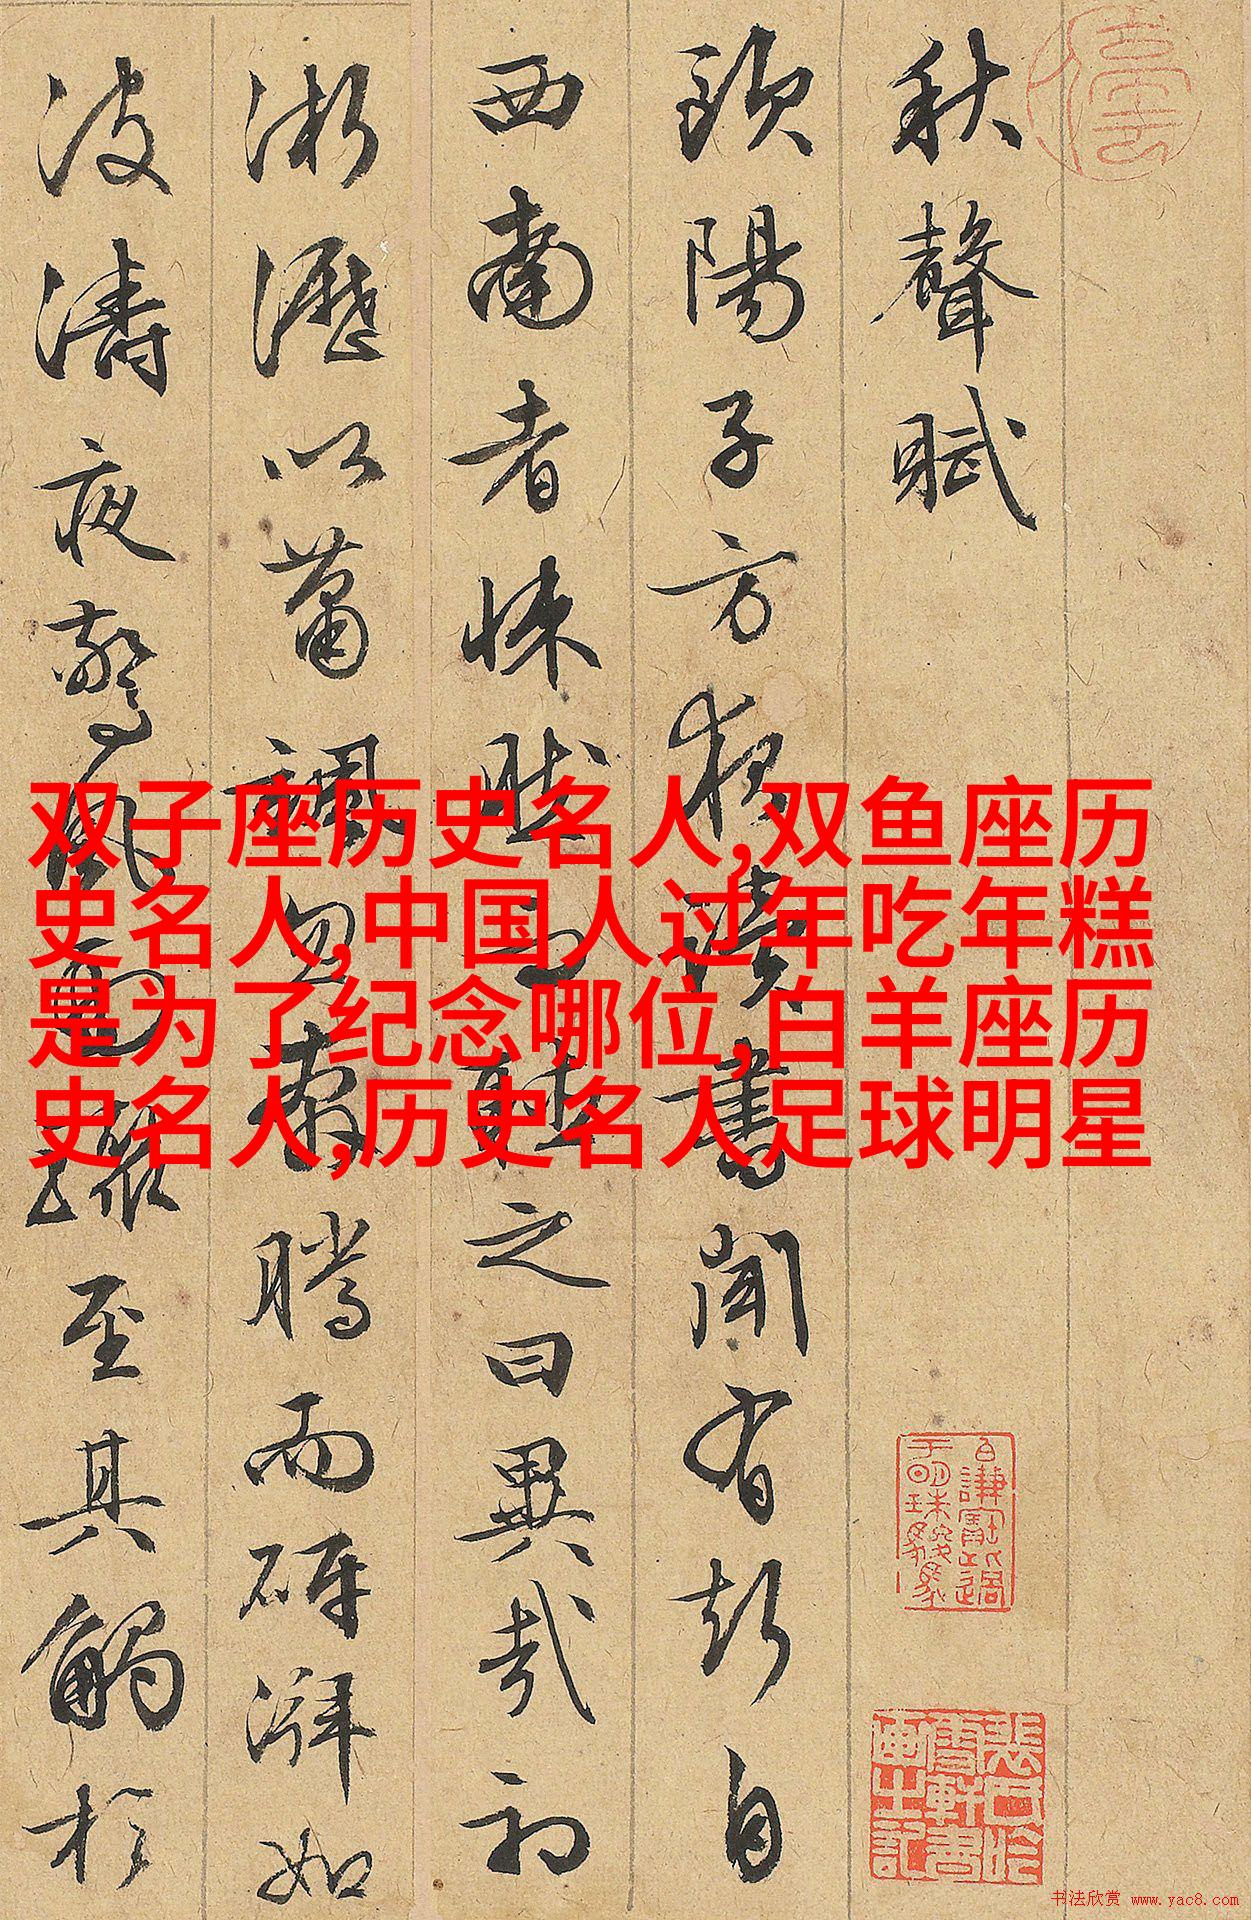 秋聲賦
歐陽子方夜讀書聞有聲自
西南者悚然而聽之曰異哉初
淅瀝以蕭颯忽奔騰而砰湃如
波濤夜驚風雨驟至其觸於
双子座历史名人,双鱼座历
史名人,中国人过年吃年糕
是为了纪念哪位,白羊座历
史名人,历史名人足球明星
书法欣赏 www.yac8.com